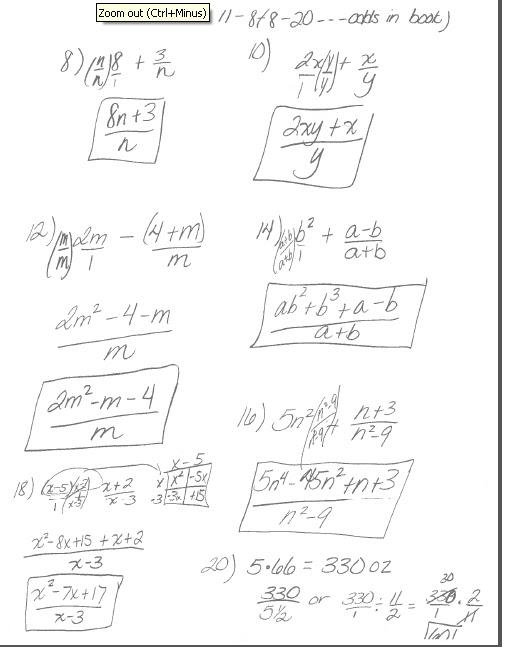 Zoom out (Ctrl+Minus)
11-8 (8-20 --- odds in book)
8) (n/n) 8/1 + 3/n
(8n+3)/n
10) 2x/1 (y/y) + x/y
(2xy+x)/y
12) (m/m) 2m/1 - (4+m)/m
(2m²-4-m)/m
(2m²-m-4)/m
14) (a+b/a+b) b²/1 + (a-b)/(a+b)
(ab²+b³+a-b)/(a+b)
16) 5n² (n²-9/n²-9) + (n+3)/(n²-9)
(5n⁴-45n²+n+3)/(n²-9)
18) (x-5)/1 (x-3)/(x-3) + (x+2)/(x-3)
x-5
x x² -5x
-3 -3x +15
(x²-8x+15+x+2)/(x-3)
(x²-7x+17)/(x-3)
20) 5·66 = 330 oz
330/5½ or 330/1 ÷ 11/2 = 330/1 · 2/11
30